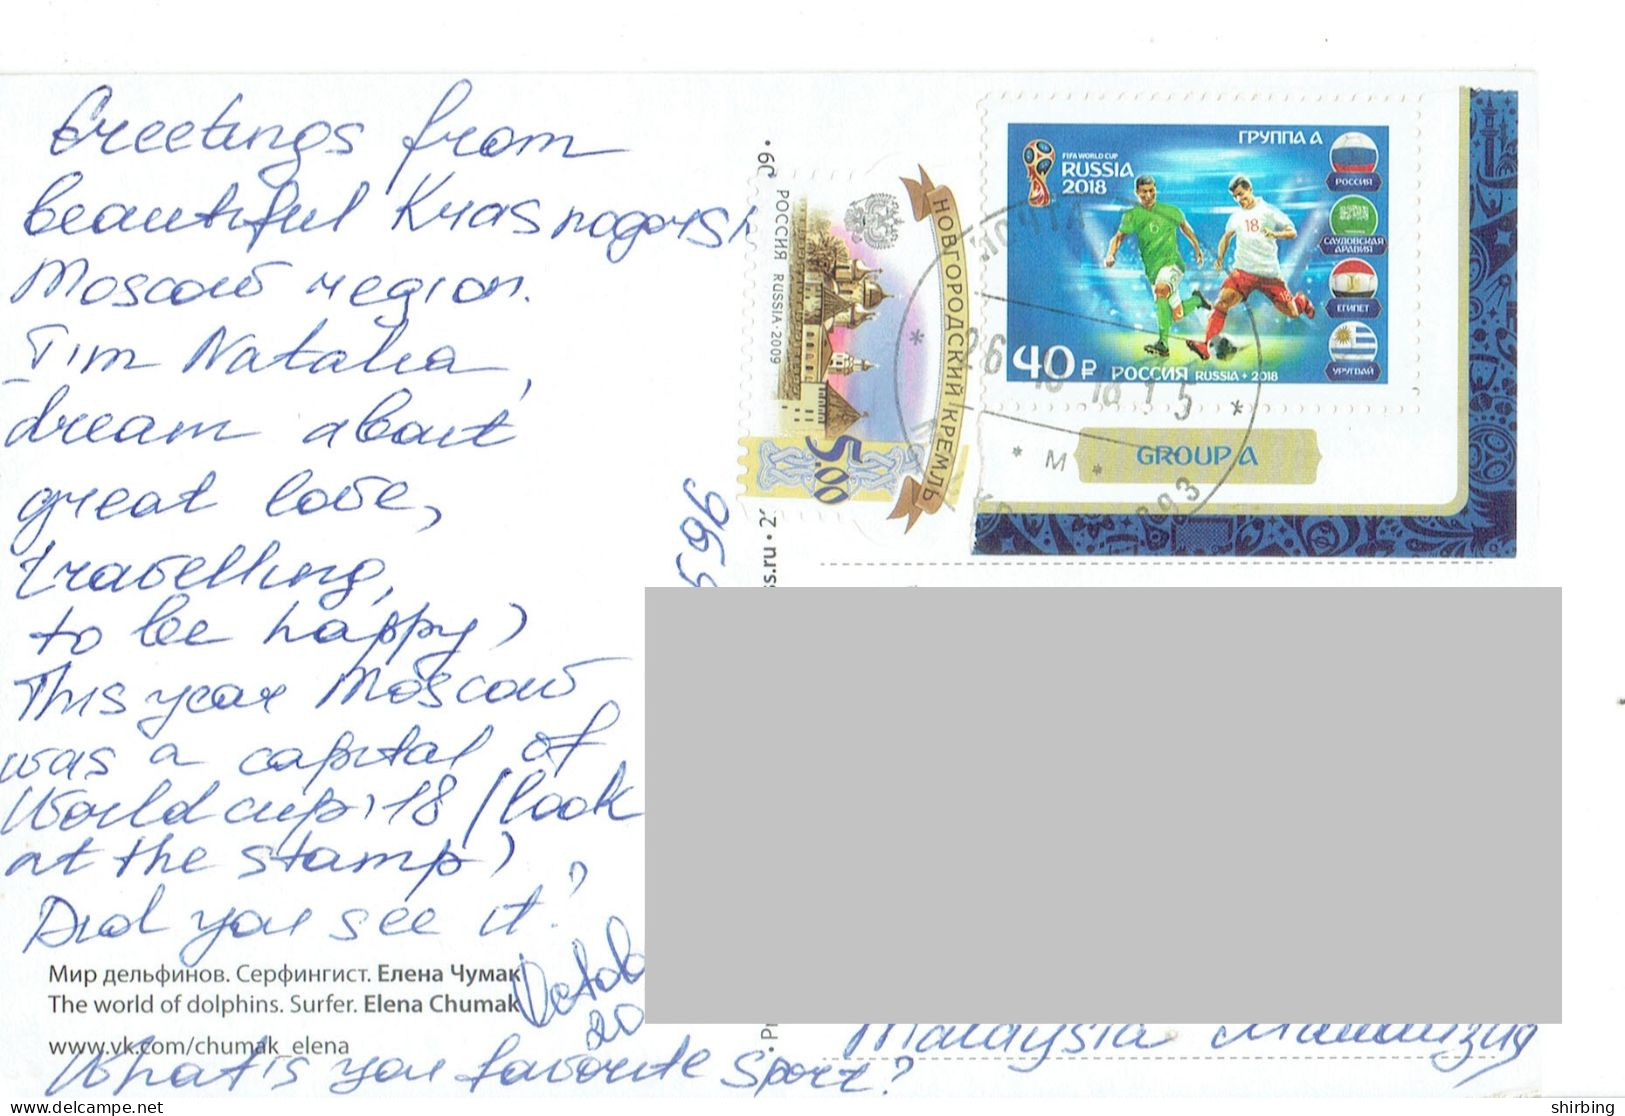 Greetings from
beautiful Krasnogorsk
Moscow region.
I'm Natalia,
dream about
great love,
travelling,
to be happy)
This year Moscow
was a capital of
World cup'18 (look
at the stamp)
Did you see it?
What's you favorite sport?
Мир дельфинов. Серфингист. Елена Чумак
The world of dolphins. Surfer. Elena Chumak
www.vk.com/chumak_elena
РОССИЯ RUSSIA·2009
НОВГОРОДСКИЙ КРЕМЛЬ
5.00
ГРУППА А
FIFA WORLD CUP
RUSSIA
2018
РОССИЯ
САУДОВСКАЯ
АРАВИЯ
ЕГИПЕТ
УРУГВАЙ
15
18
40₽ РОССИЯ RUSSIA • 2018
GROUP A
Malaysia Малайзия
delcampe.net
shirbing